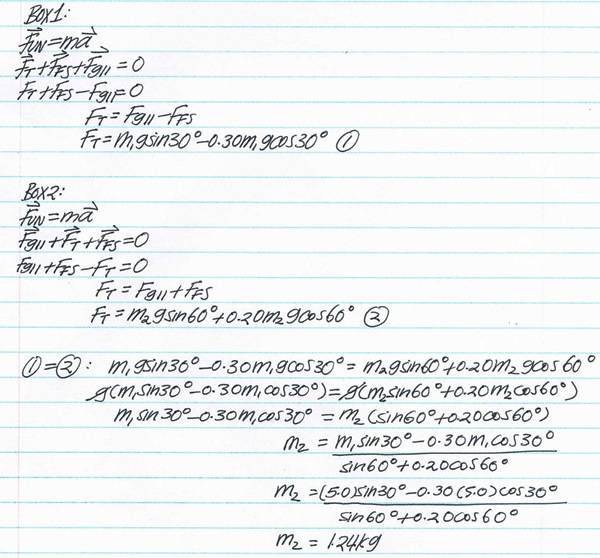 BOX1:
F⃗UN=ma⃗
F⃗T+F⃗FS+F⃗g11=0
FT+FFS-Fg11=0
FT=Fg11-FFS
FT=m₁gsin30°-0.30m₁gcos30° ①
BOX2:
F⃗UN=ma⃗
F⃗g11+F⃗T+F⃗FS=0
Fg11+FFS-FT=0
FT=Fg11+FFS
FT=m₂gsin60°+0.20m₂gcos60° ②
①=②: m₁gsin30°-0.30m₁gcos30°=m₂gsin60°+0.20m₂gcos60°
g(m₁sin30°-0.30m₁cos30°)=g(m₂sin60°+0.20m₂cos60°)
m₁sin30°-0.30m₁cos30°=m₂(sin60°+0.20cos60°)
m₂=m₁sin30°-0.30m₁cos30°
sin60°+0.20cos60°
m₂=(5.0)sin30°-0.30(5.0)cos30°
sin60°+0.20cos60°
m₂=1.24kg